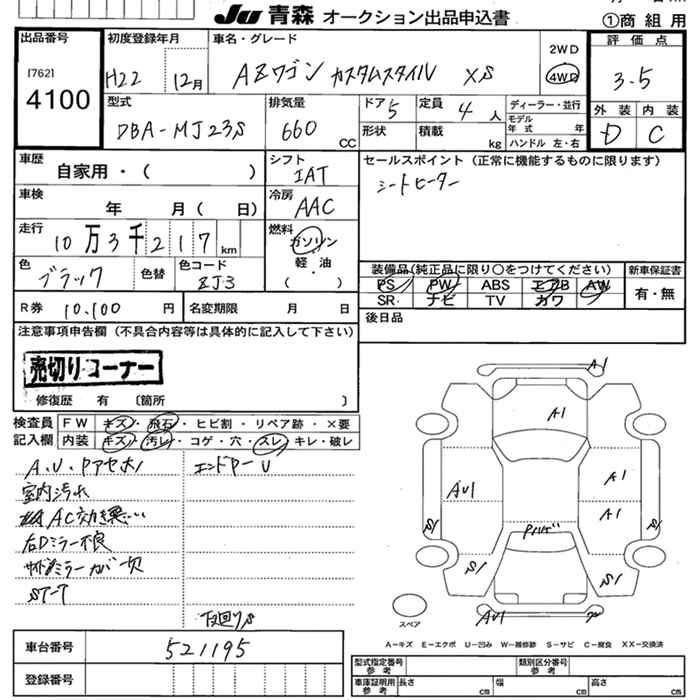 JU 青森 オークション出品申込書
①商組用
出品番号
[762]
4100
初度登録年月
H22 12月
車名・グレード
AZワゴン カスタムスタイル XS
2WD
4WD
評価点
3.5
型式
DBA-MJ23S
排気量
660 CC
ドア 5
定員 4 人
形状
積載 kg
ディーラー・並行
モデル年式 年
ハンドル 左・右
外装 内装
D C
車歴
自家用・( )
シフト
IAT
セールスポイント (正常に機能するものに限ります)
シートヒーター
車検
年 月( 日)
冷房
AAC
走行
10万3千217 km
燃料
ガソリン
軽・油
( )
色
ブラック
色替
色コード
ZJ3
装備品(純正品に限り○をつけてください)
PS PW ABS エアB AW
SR ナビ TV カワ
新車保証書
有・無
R券 10,100 円
名変期限 月 日
後日品
注意事項申告欄 (不具合内容等は具体的に記入して下さい)
売切りコーナー
修復歴 有 〔箇所 〕
検査員記入欄
FW キズ・飛石・ヒビ割・リペア跡・×要
内装 キズ・汚レ・コゲ・穴・スレ・キレ・破レ
エンドアーU
室内汚れ
AC効き悪い
右Dミラー不良
ST-T
下廻りS
A1
A1
A1
AU1
A1
S1
S1
S1
S1
AU1
スペア
A-キズ E-エクボ U-凹み W-補修跡 S-サビ C-腐食 XX-交換済
車台番号
521195
登録番号
型式指定番号 参考
類別区分番号 参考
車庫証明用 参考 長さ cm 幅 cm 高さ cm